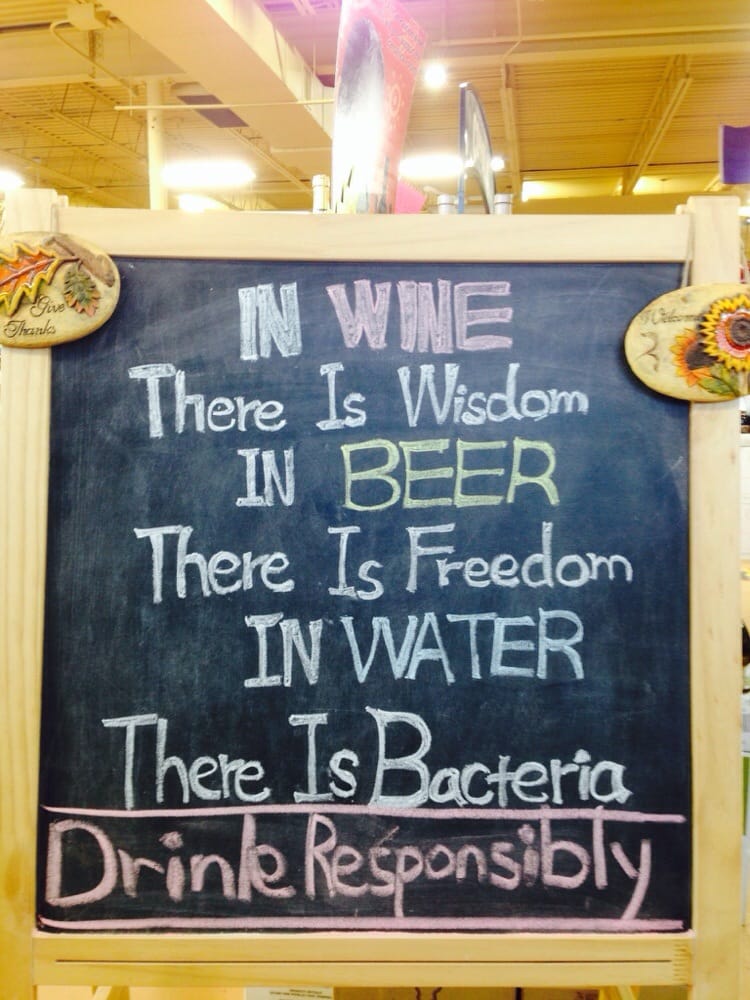 Give
Thanks
Welcome
IN WINE
There Is Wisdom
IN BEER
There Is Freedom
IN WATER
There Is Bacteria
Drink Responsibly